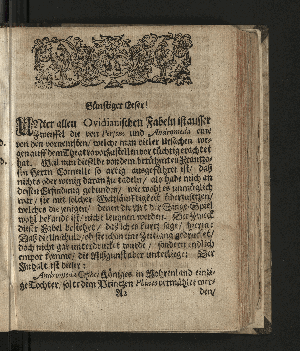 Günstiger Leser!
Unter allen Ovidianischen Fabeln ist ausser
Zweiffel die von Perseus und Andromeda eine
von den vornemsten/ welche man vieler Ursachen we-
gen auff dem Theatro vorzustellen vor tüchtig erachtet
hat. Weil nun dieselbe von dem berühmten Frantzo-
sen Herrn Corneille so artig ausgeführet ist/ daß
nichts oder wenig daran zu tadeln/ als habe mich an
dessen Erfindung gebunden/ wie wohl es unmüglich
war/ sie mit solcher Weitläufftigkeit überzusetzen/
welches die jenigen/ denen die Art der Singe-Spiele
wohl bekandt ist/ nicht leugnen werden. Der Zweck
dieser Fabel bestehet/ daß ich es kurtz sage/ hierin:
Daß die Unschuld/ ob sie schon eine Zeitlang gedrücket/
doch nicht gar unterdrucket werde/ sondern endlich
empor komme/ die Mißgunst aber unterliege: Der
Inhalt ist dieser:
Andromeda Cephei Königes in Mohrenland eintzi-
ge Tochter, solte dem Printzen Phineus vermählet wer-
A2 den/